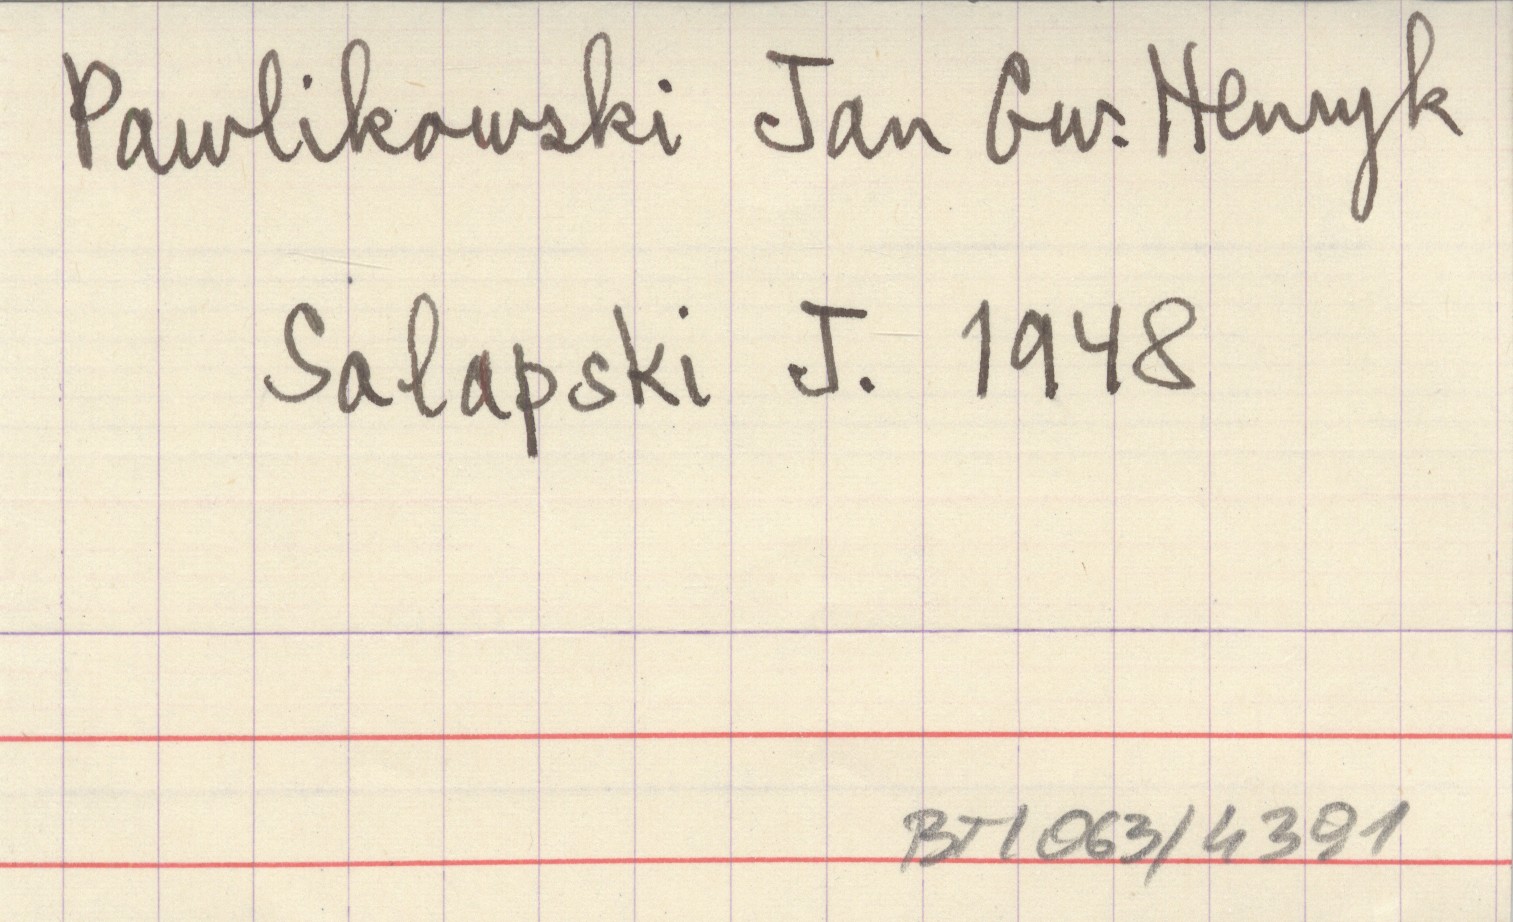 Pawlikowski Jan Gw. Henryk
Salapski J. 1948
BT/063/4391